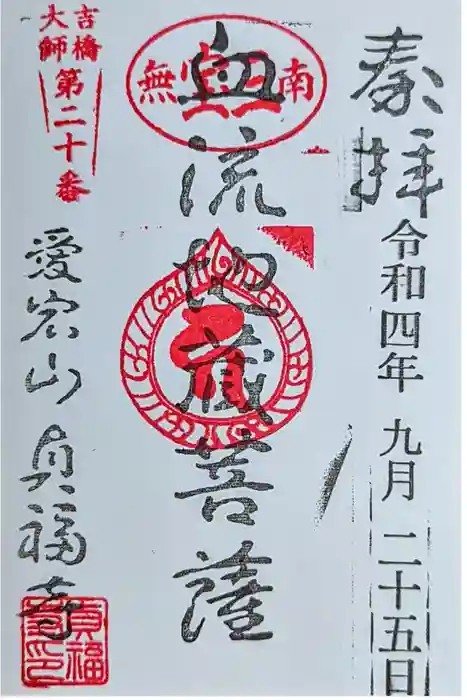 奉拝
令和四年 九月 二十五日
南無
血流地蔵菩薩
吉橋
大師
第二十番
愛宕山 貞福寺
貞福
寺印